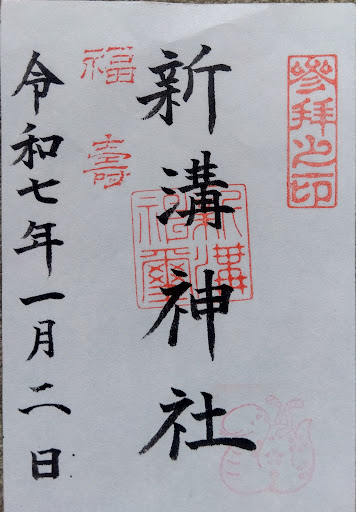 參拜之印
新溝神社
新溝神璽
福壽
令和七年一月二日